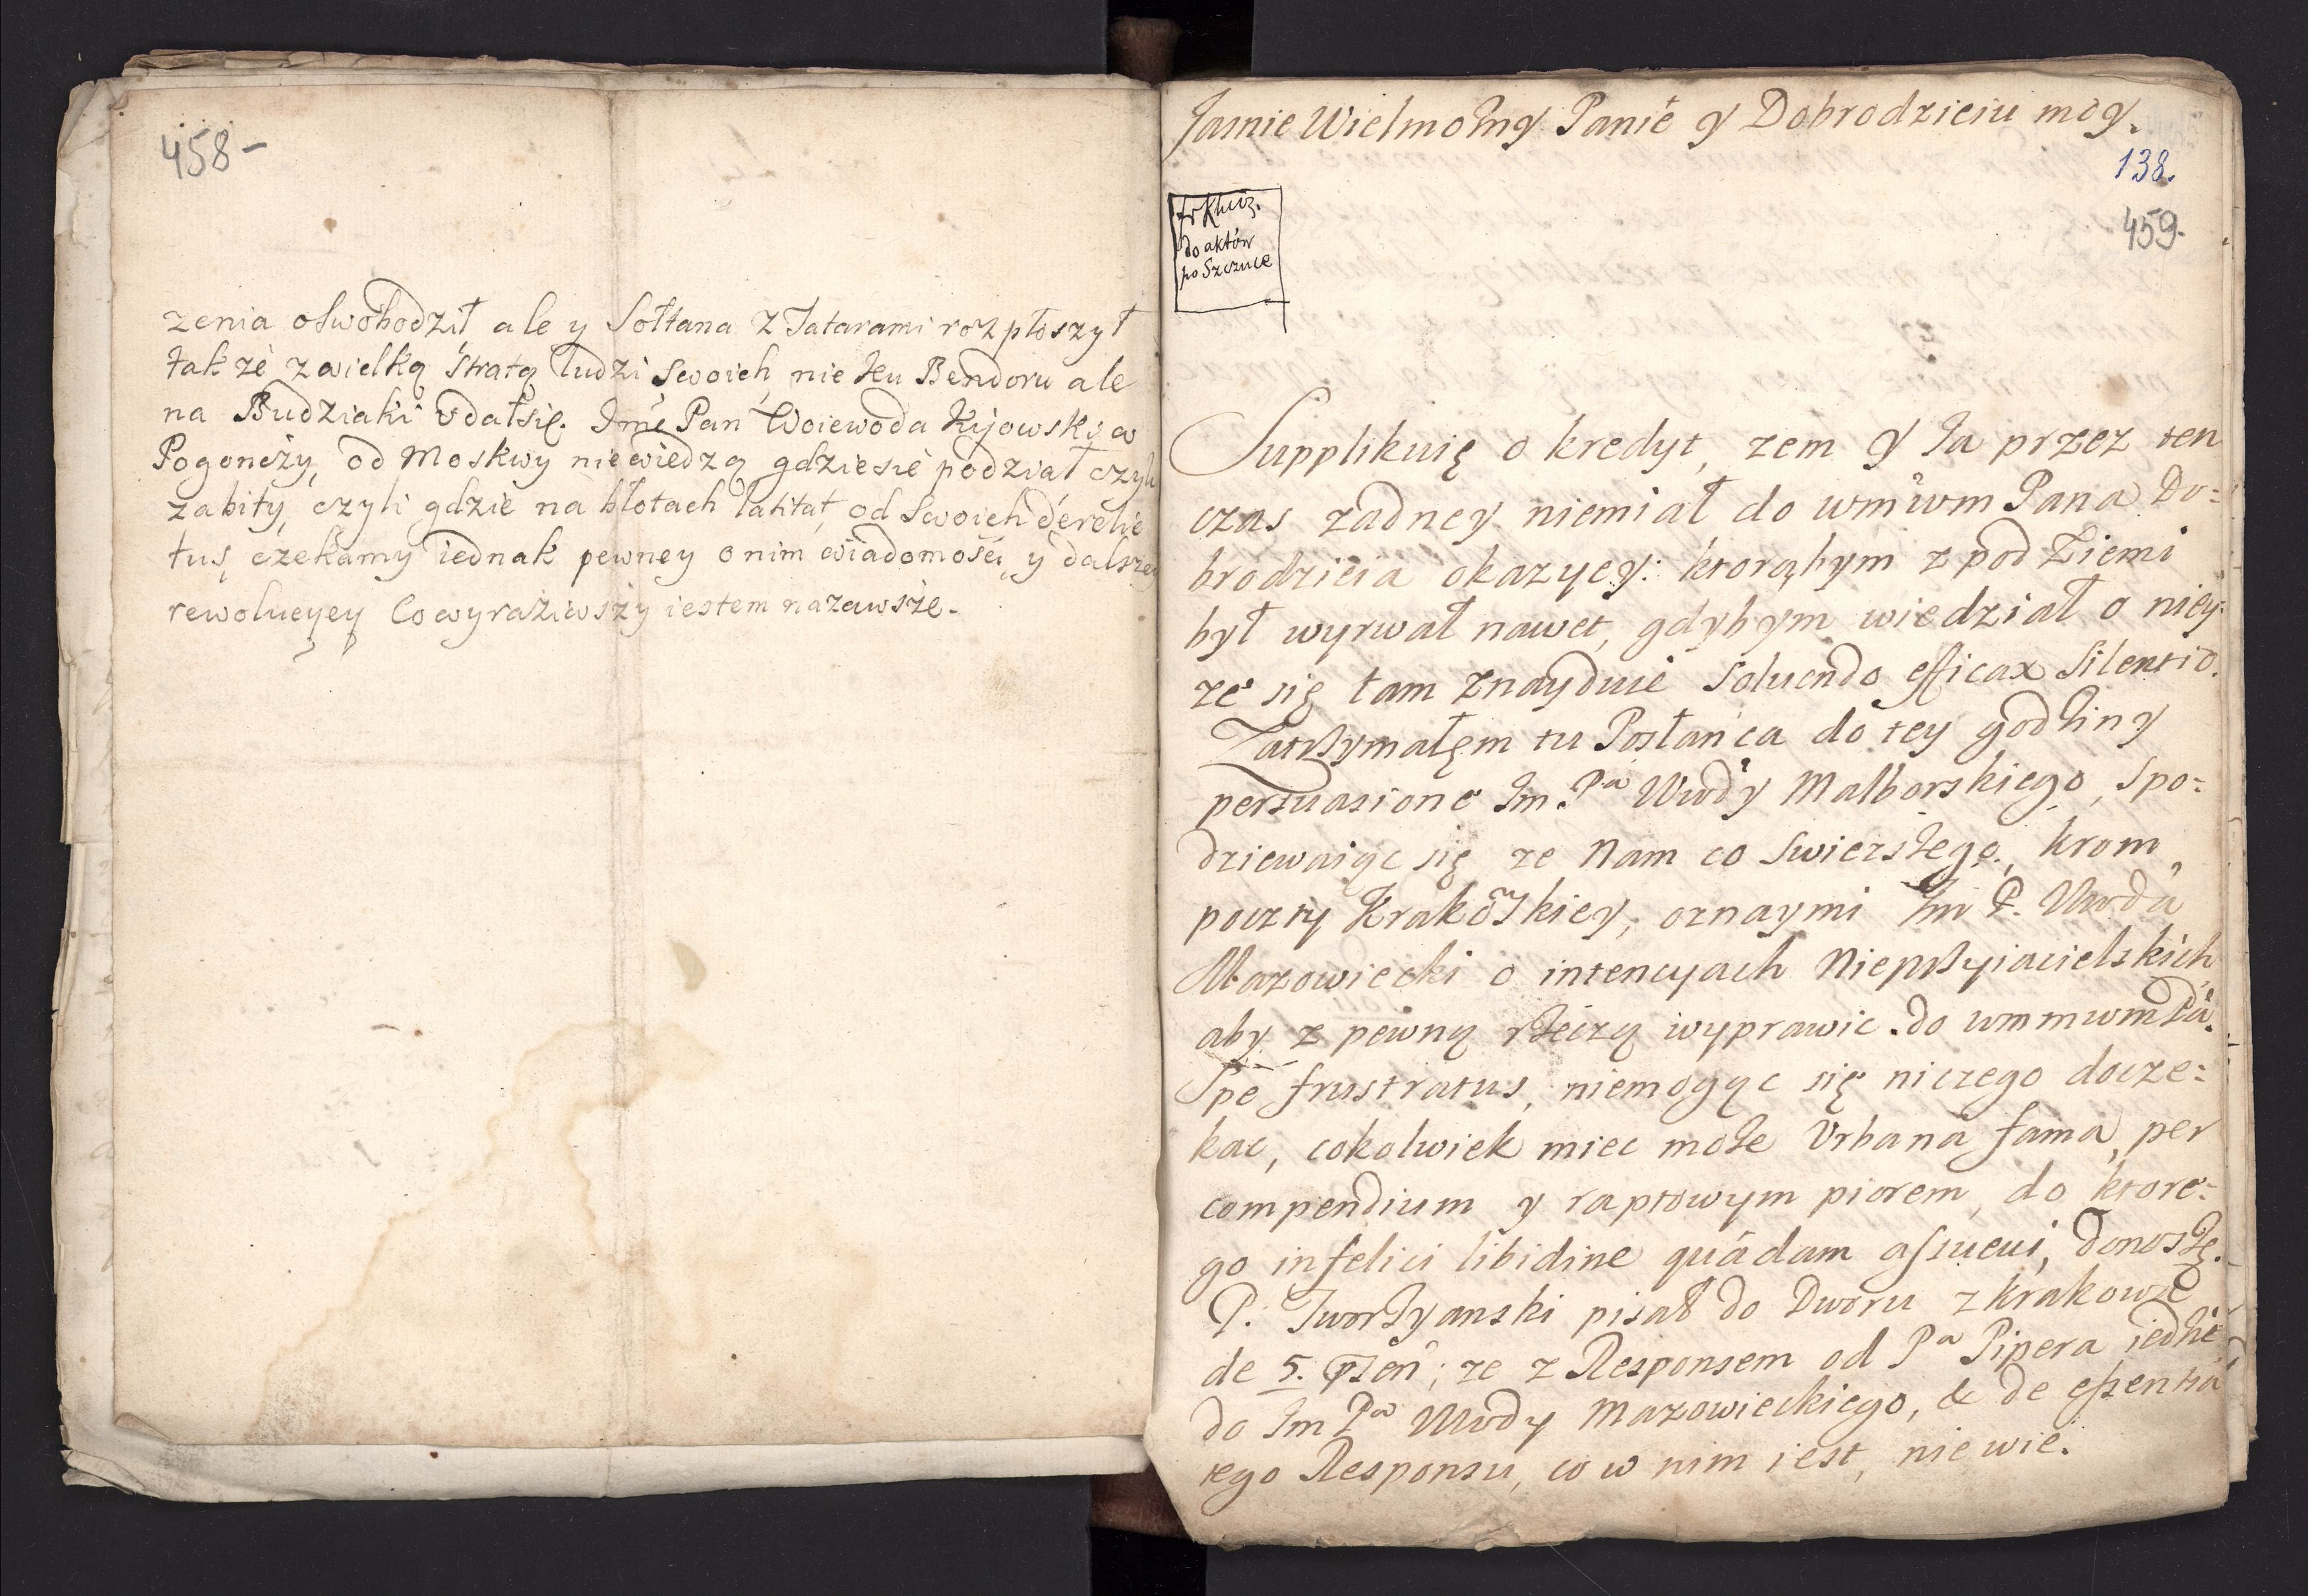 458-
zenia oswobodził, ale y Sołtana z Tatarami rozpłoszył
tak że z wielką stratą ludzi swoich, nie ku Bendoru ale
na Budziaki udał się. Jmć Pan Woiewoda Kijowski w
Pogoncży, od Moskwy niewiedzą gdzie się podział czyli
zabity, czyli gdzie na błotach latitat, od swoich derelic
tus, czekamy iednak pewney o nim wiadomości, y dalszey
rewolucyey Co wyraziwszy iestem na zawsze.
Jasnie Wielmożny Panie y Dobrodzieiu moy.
138.
459.
do aktów
po Szczuce
Supplikuię o kredyt, zem y Ja przez ten
czas zadney niemiał do wmwm Pana Do=
brodzieia okazyey: ktorąbym z pod Ziemi
był wyrwał nawet, gdybym wiedział o niey:
ze się tam znayduie soluendo efficax silentio.
Zatrzymałęm tu Posłańca do tey godziny
persuasione Jm. Pa Wwdy Malborskiego, spo=
dziewaiąc się ze Nam co swierszego, krom
poczty Krakowskiey, oznaymi Jm P. Wwda
Mazowiecki o intencyach Nieprzyiacielskich
aby z pewną rzeczą wyprawic do wmmwm Pa.
Spe frustratus, niemogąc się niczego docze=
kac, cokolwiek miec może Urbana fama, per
compendium y raptowym piorem, do ktore=
go infelici libidine quâdam assueui, donoszę.
P. Tworzyanski pisał do Dworu z Krakowa
de 5. ; ze z Responsem od Pa Pipera iedzie
do Jm Pa Wwdy Mazowieckiego, & de essentia
tego Responsu, co w nim iest, nie wie.